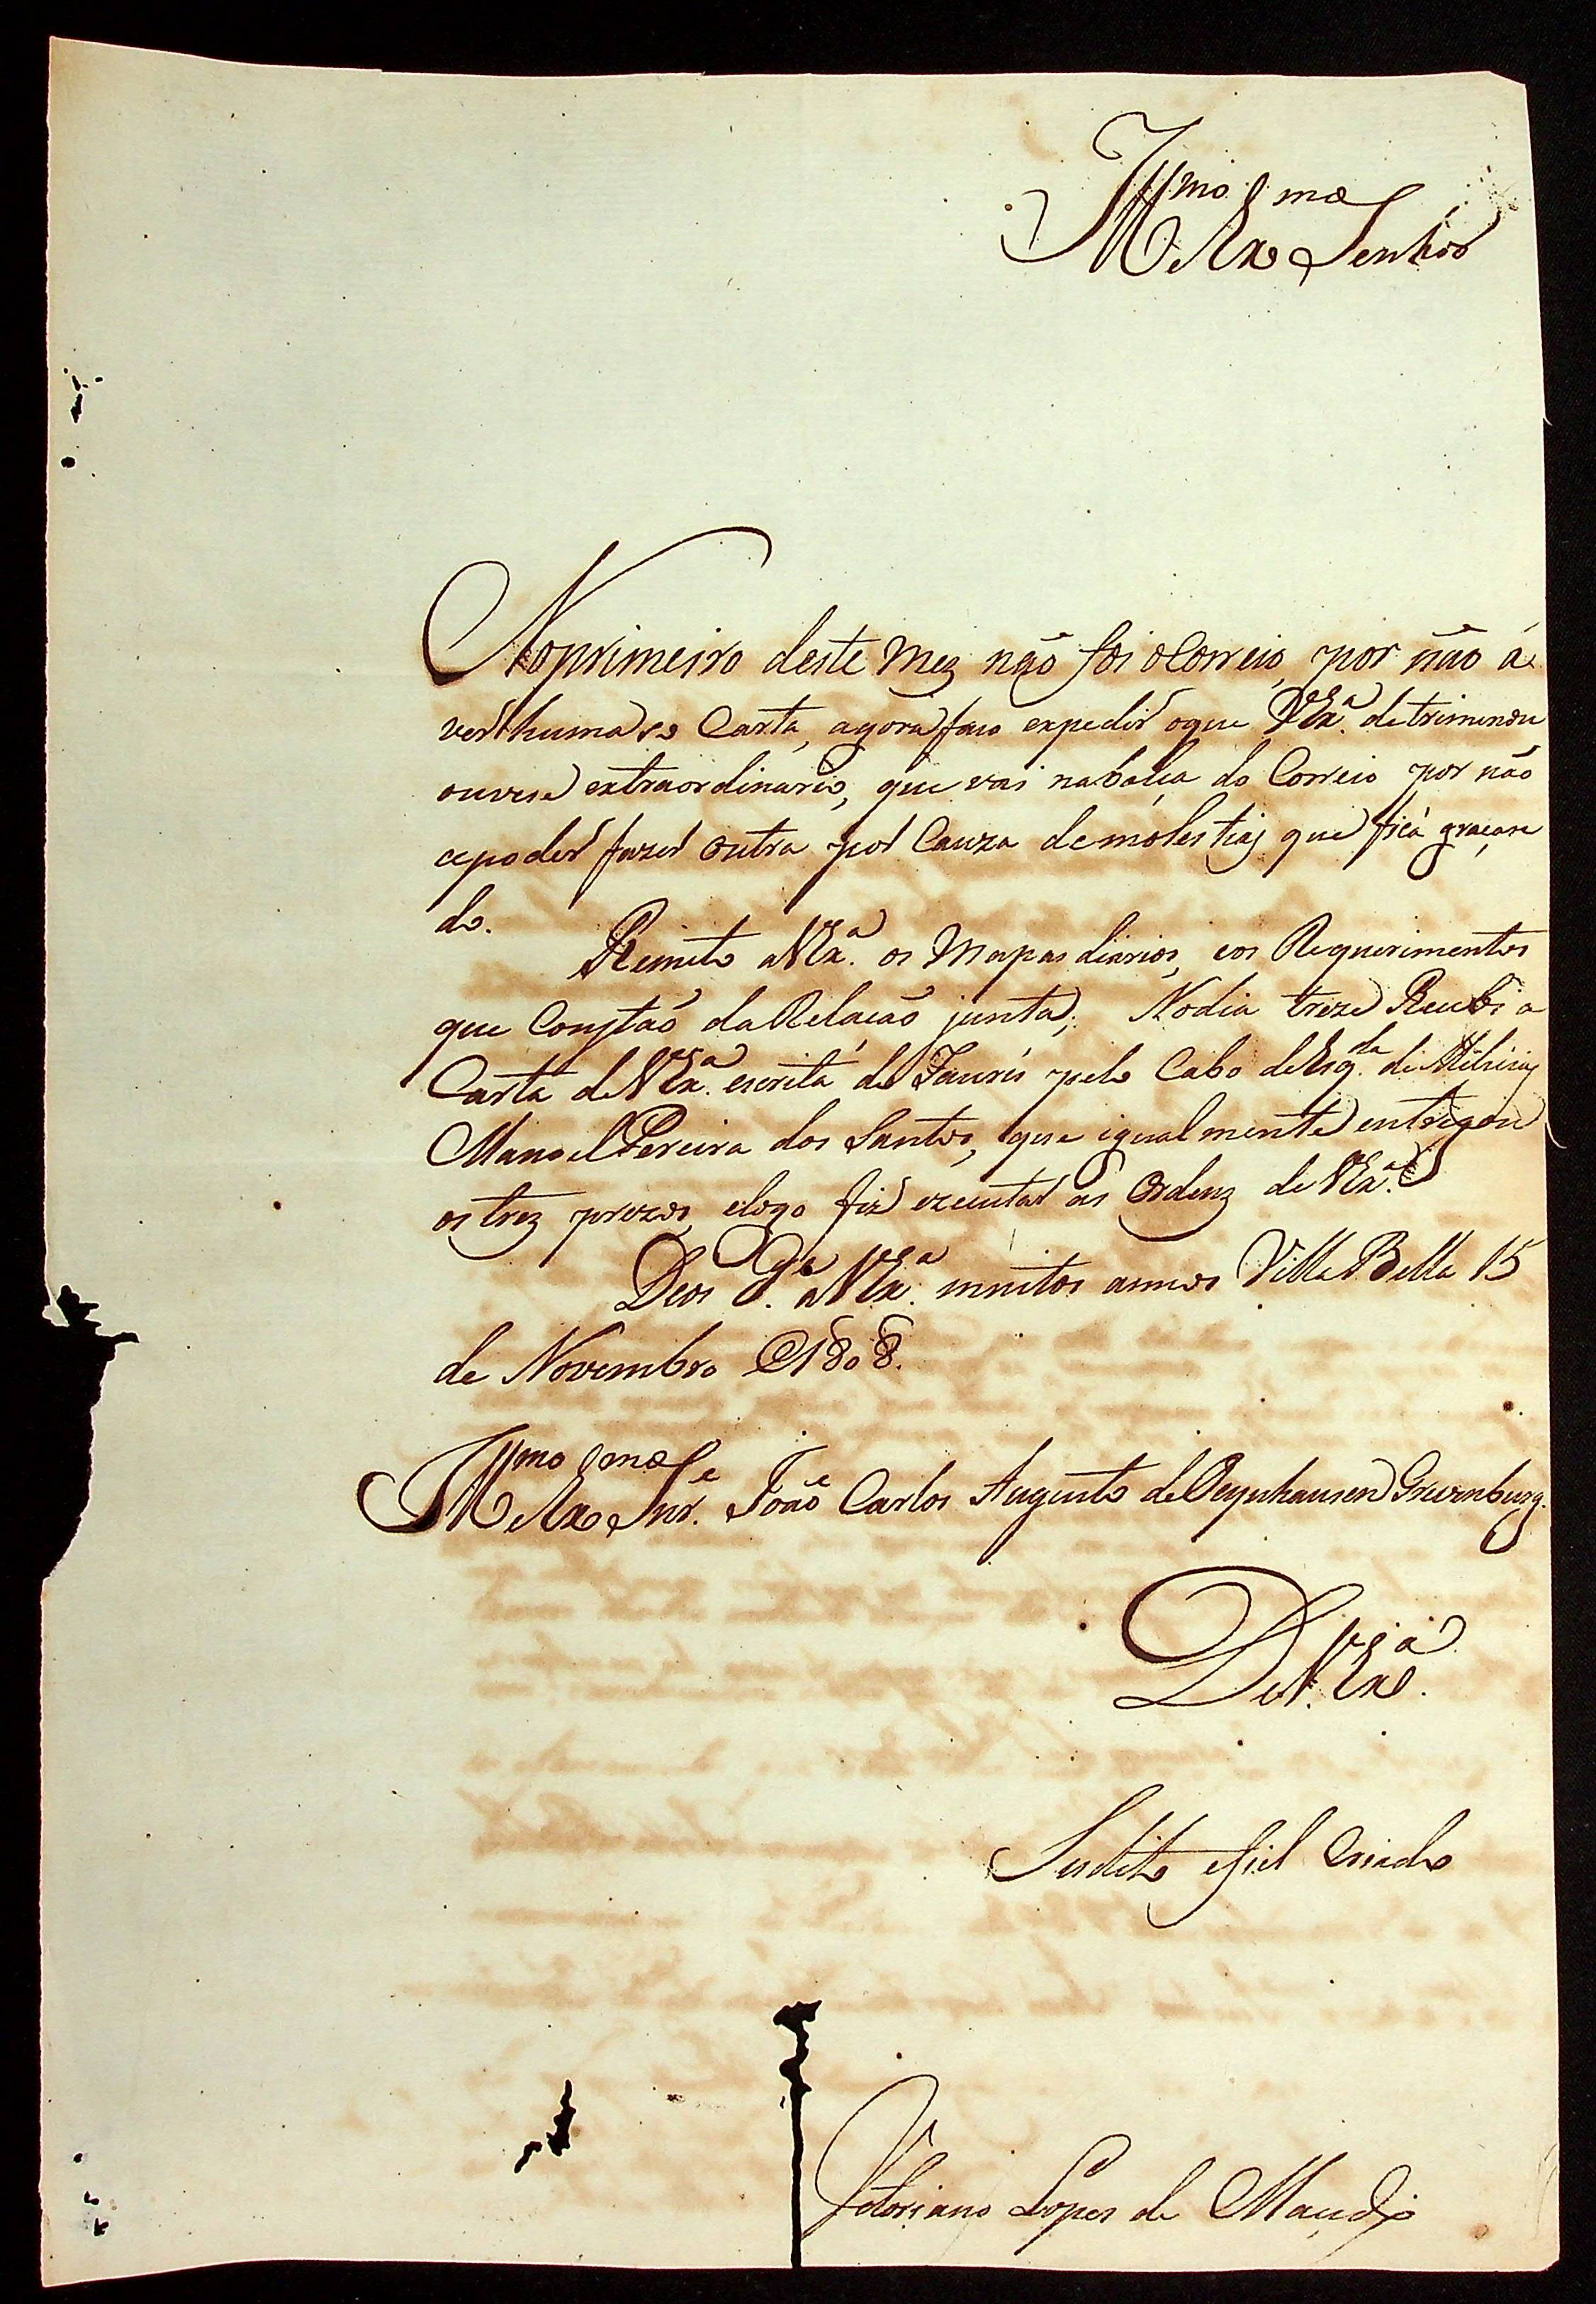 Ill.mo e Ex.mo Senhor
No primeiro deste Mez não foi o Correio, por não á
ver huma so Carta, agora faso expedir o que V Ex.a detriminou
ouvese extraordinario, que vai na balça do Correio por não
ce poder fazer outra por Cauza de molestias que fica graçan
do.
Remeto a V Ex.a os Mapas diarios, e os Requerimentos
que Constaõ da Relaçaõ junta; No dia treze Recebi a
Carta de V Ex.a escrita do Jaurú pelo Cabo de Esq.da de Milicias
Manoel Pereira dos Santos, que igualmente entregou
os trez prezos, e logo fiz ezecutar as Ordenz de V Ex.a
Deos G.de a V Ex.a muitos annos Villa Bella 15
de Novembro de 1808.
Ill.mo e Ex.mo Snr. João Carlos Augusto de Oeynhausen Grevenburg.
De V. Ex.a
Sudito e fiel Criado
Victoriano Lopes de Macedo